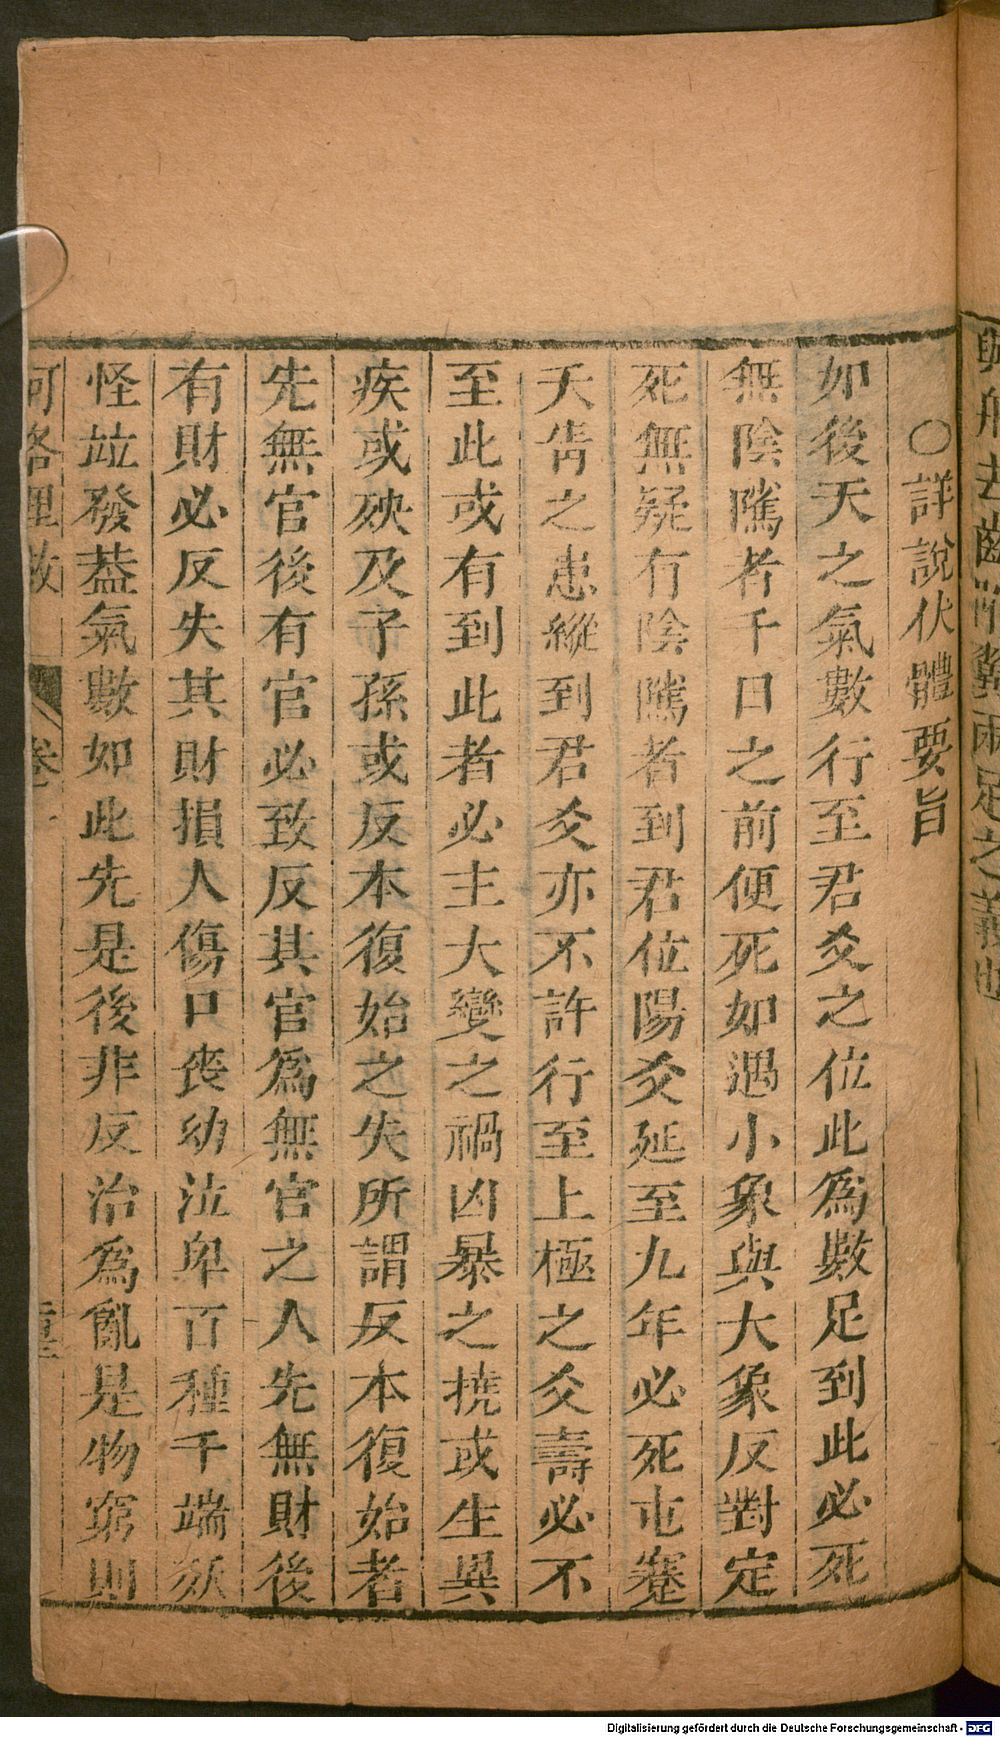 與舟去齒附翼兩足之義也
○詳說伏體要旨
如後天之氣數行至君爻之位此爲數足到此必死
無陰隲者千日之前便死如遇小象與大象反對定
死無疑有陰隲者到君位陽爻延至九年必死屯蹇
夭眚之患縱到君爻亦不許行至上極之爻壽必不
至此或有到此者必主大變之禍凶暴之撓或生異
疾或殃及子孫或反本復始之失所謂反本復始者
先無官後有官必致反其官爲無官之人先無財後
有財必反失其財損人傷口喪幼泣卑百種千端妖
怪竝發葢氣數如此先是後非反治爲亂是物窮則
河洛理數 卷
Digitalisierung gefördert durch die Deutsche Forschungsgemeinschaft - DFG